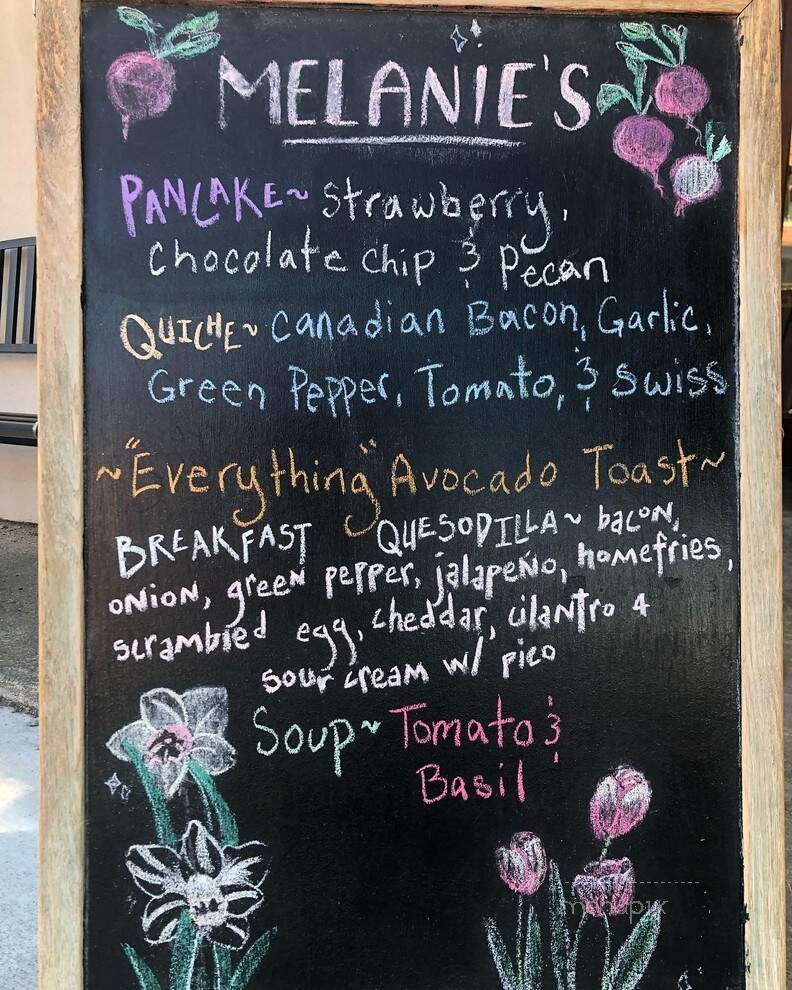 MELANIE'S
PANCAKE~ Strawberry,
Chocolate Chip & Pecan
QUICHE~ Canadian Bacon, Garlic,
Green Pepper, Tomato, & Swiss
~"Everything" Avocado Toast~
BREAKFAST QUESODILLA~ bacon,
onion, green pepper, jalapeño, homefries,
scrambled egg, cheddar, cilantro &
sour cream w/ pico
Soup~ Tomato &
Basil
menupix